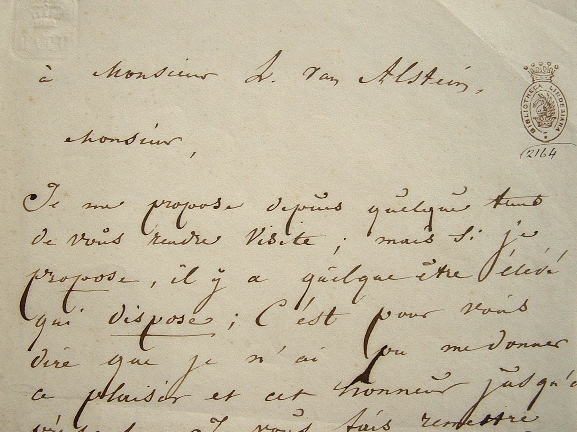 à Monsieur L. van Alstein,
BIBLIOTHECA LINDESIANA
2164
Monsieur,
Je me propose depuis quelque tems
de vous rendre visite ; mais si je
propose, il y a quelque être élevé
qui dispose ; C'est pour vous
dire que je n'ai pu me donner
ce plaisir et cet honneur jusqu'à
vous fais remettre